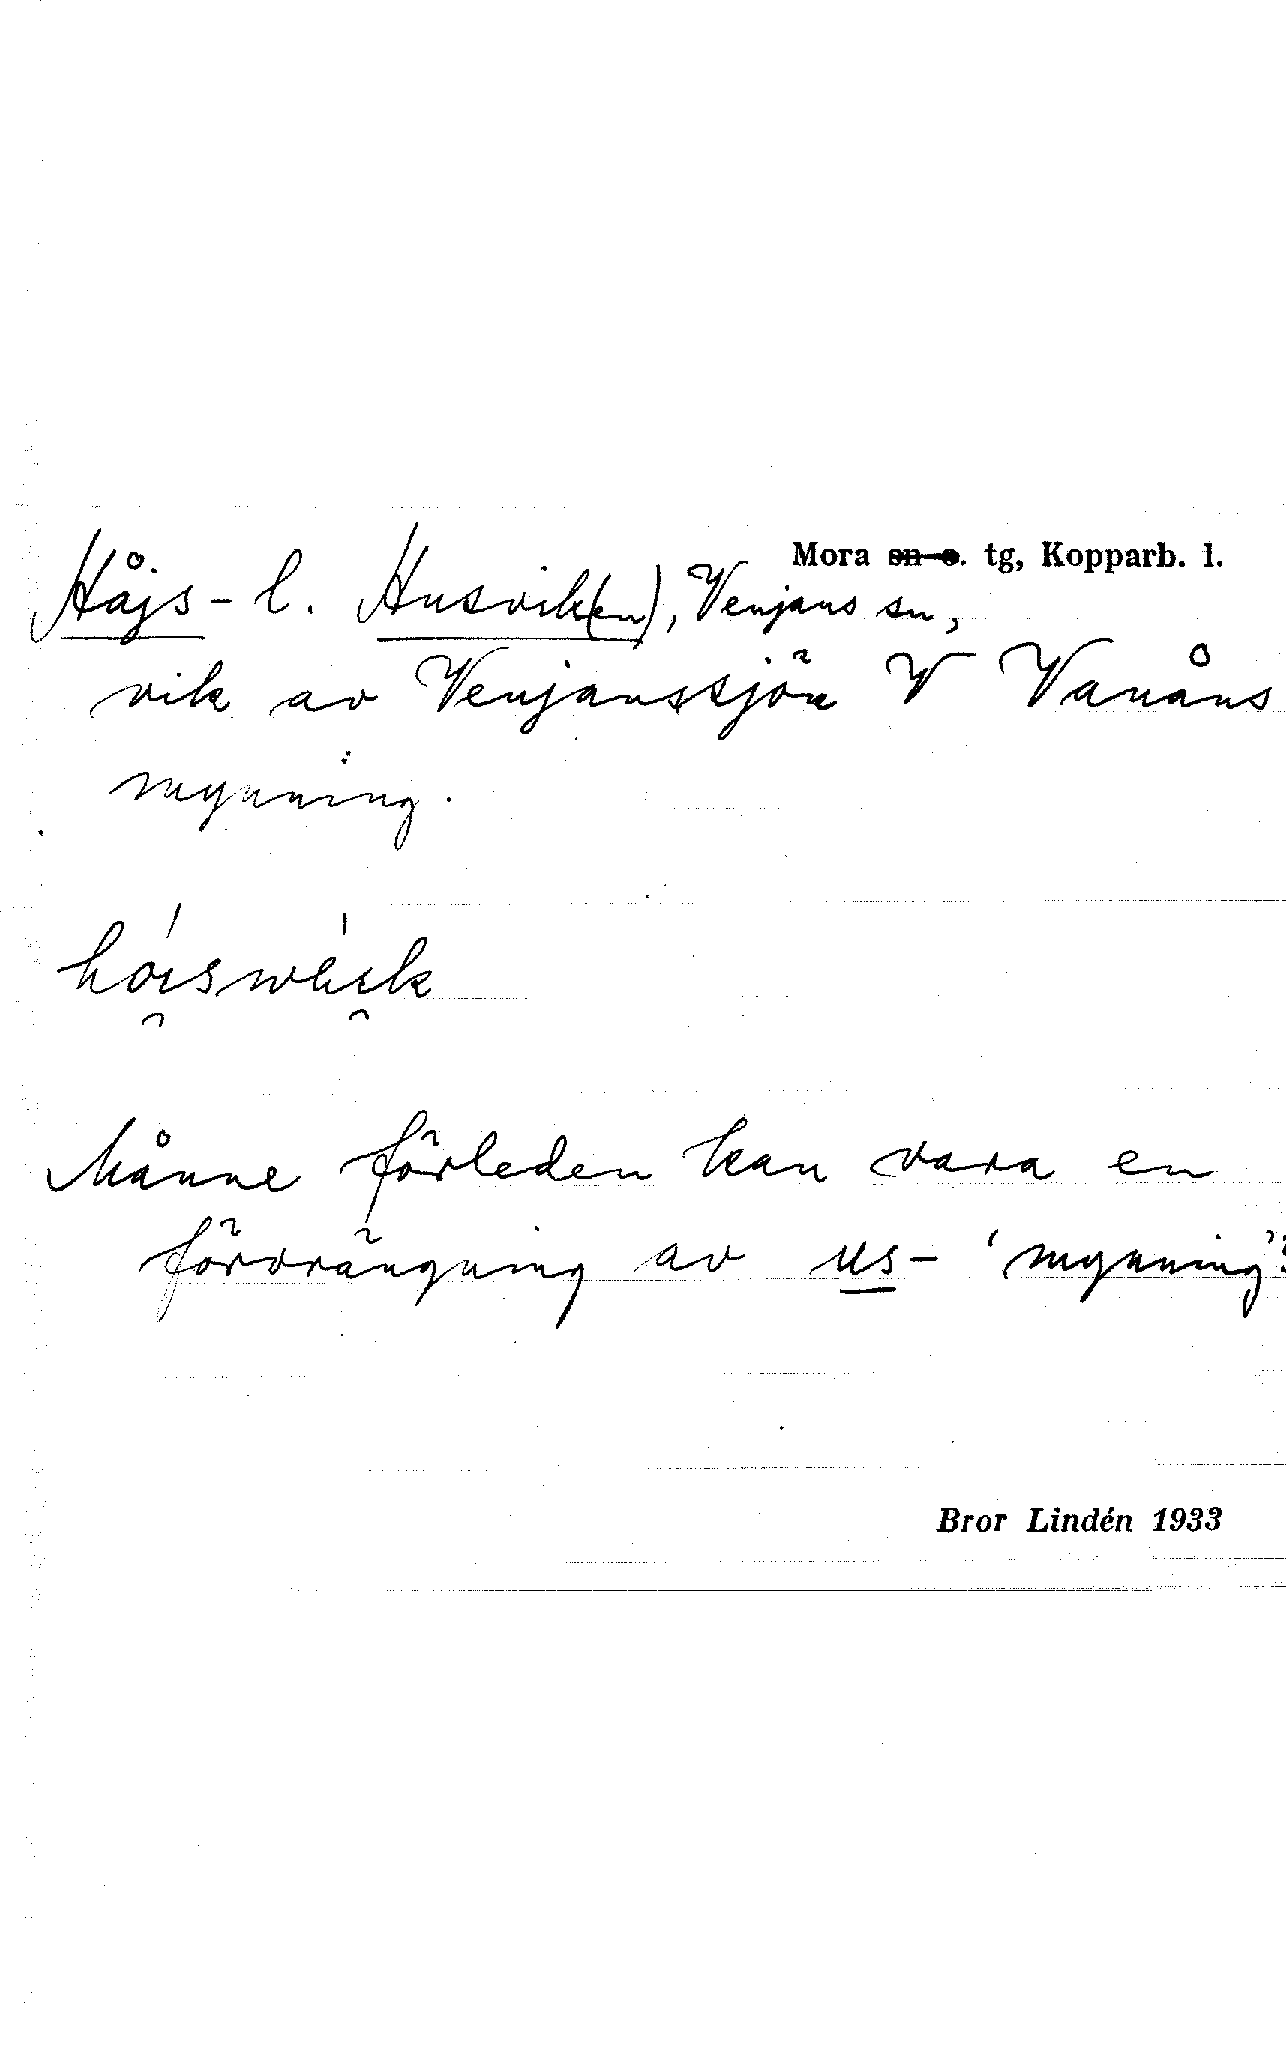 Mora sn o. tg, Kopparb. l.
Håjs- l. Husvik(en), Venjans sn,
vik av Venjanssjön V Vanåns
mynning.
Månne förleden kan vara en
förvrängning av us- 'mynning'?
Bror Lindén 1933